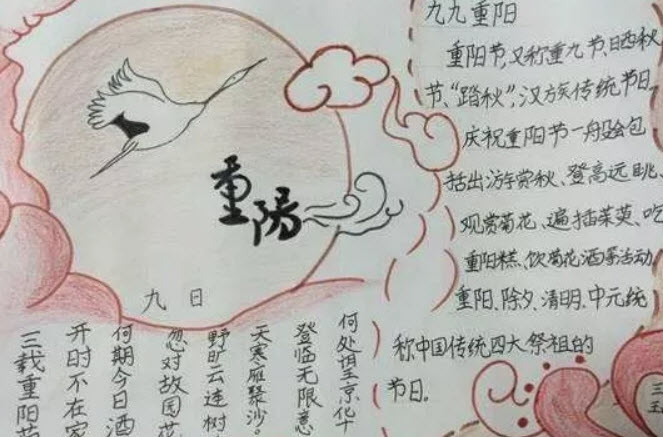 重陽
九日
三载重阳菊
开时不在家
何期今日酒
忽对故园花
野旷云连树
天寒雁聚沙。
登临无限意
何处望京华
九九重阳
重阳节,又称重九节、晒秋
节、“踏秋”,汉族传统节日
庆祝重阳节一般会包
括出游赏秋、登高远眺、
观赏菊花、遍插茱萸、吃
重阳糕、饮菊花酒等活动
重阳、除夕、清明、中元统
称中国传统四大祭祖的
节日.
三